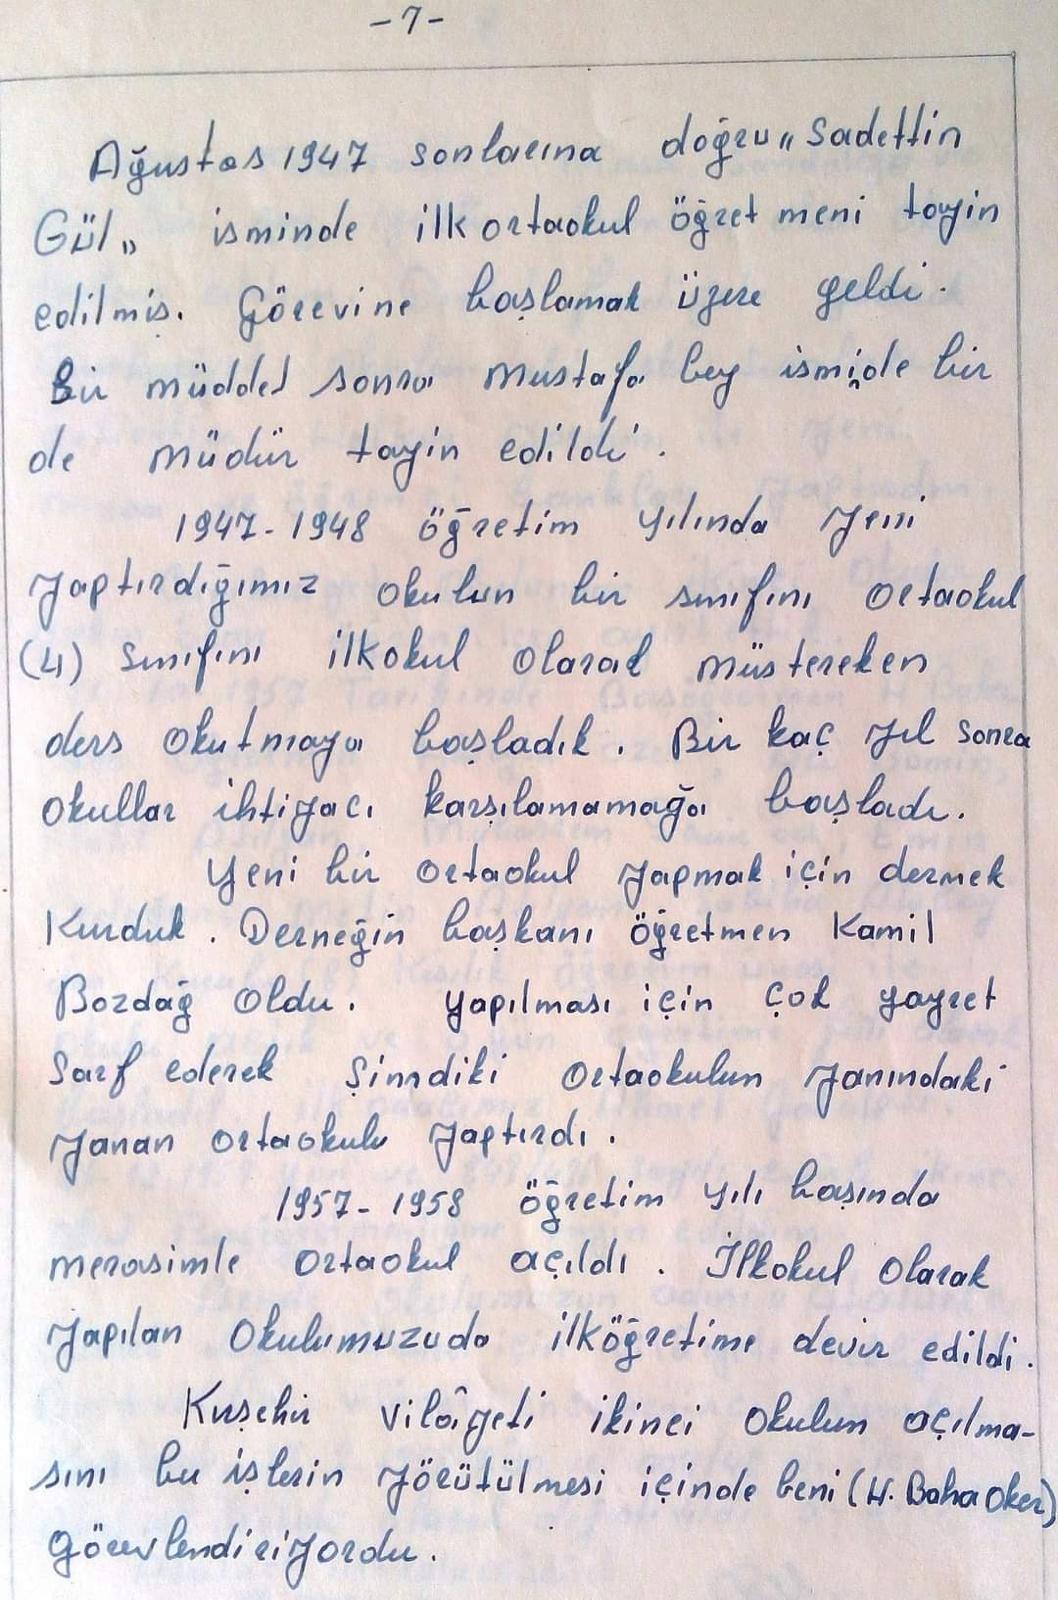 -7-
Ağustos 1947 sonlarına doğru „Sadettin
Gül„ isminde ilk ortaokul öğretmeni tayin
edilmiş. Görevine başlamak üzere geldi.
Bir müddet sonra Mustafa bey isminde bir
de müdür tayin edildi.
1947-1948 öğretim yılında yeni
yaptırdığımız okulun bir sınıfını ortaokul
(4) sınıfını ilkokul olarak müştereken
ders okutmaya başladık. Bir kaç yıl sonra
okullar ihtiyacı karşılamamağa başladı.
Yeni bir ortaokul yapmak için dernek
Kurduk. Derneğin başkanı öğretmen Kamil
Bozdağ oldu. Yapılması için çok gayret
Sarf ederek Şimdiki ortaokulun yanındaki
yanan ortaokulu yaptırdı.
1957-1958 öğretim yılı başında
merasimle ortaokul açıldı. İlkokul olarak
yapılan okulumuzuda ilköğretime devir edildi.
Kırşehir vilâyeti ikinci okulun açılma-
sını bu işlerin yörütülmesi içinde beni (H. Baha Oker)
görevlendiriyordu.